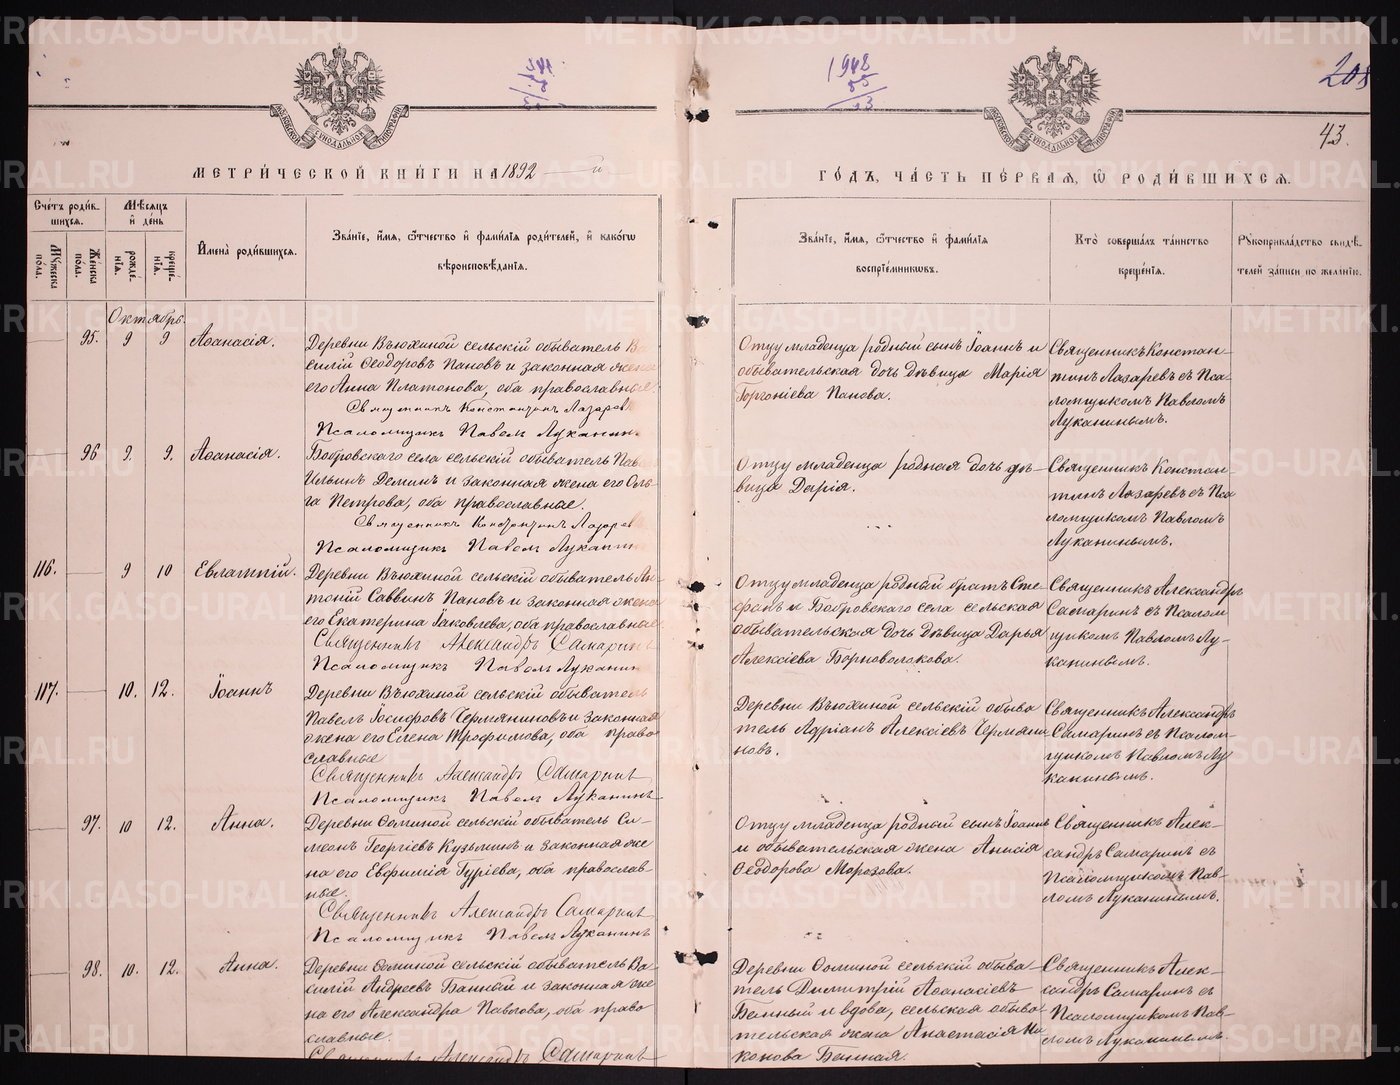 1948
208
43.
МЕТРИ́ЧЕСКОЙ КНИ́ГИ НА 1892 й
ГО́ДЪ, ЧА́СТЬ ПЕ́РВАЯ, Ѡ РОДИ́ВШИХСЯ.
Сче́тъ роди́в-
шихся.
Мѣ́сяцъ
и҆ де́нь
Му́жеска
по́ла.
Же́нска
по́ла.
рожде́-
нїя.
креще́-
нїя.
И҆мена̀ роди́вшихся.
Зва́нїе, и҆́мя, ѻ҆́тчество и҆ фами́лїя роди́телей, и҆ како́гѡ
вѣроисповѣ́данїя.
Зва́нїе, и҆́мя, ѻ҆́тчество и҆ фами́лїя
воспрїе́мникѡвъ.
Кто̀ соверша́лъ та́инство
креще́нїя.
Рꙋкоприкла́дство свидѣ́-
телей за́писи по жела́нїю.
Октябрь.
95. 9 9 Аѳанасія.
Деревни Вьюхиной сельскій обыватель Ва
силій Ѳеодоровъ Пановъ и законная жена
его Анна Платонова, оба православные.
Священникъ Константинъ Лазаревъ
Псаломщикъ Павелъ Луканинъ
Отцу младенца родный сынъ Іоаннъ и
обывательская дочь дѣвица Марія
Горгоніева Панова.
Священникъ Констан-
тинъ Лазаревъ съ Пса-
ломщикомъ Павломъ
Луканинымъ.
96 9. 9. Аѳанасія.
Бобровскаго села сельскій обыватель Павелъ
Ильинъ Деминъ и законная жена его Оль-
га Петрова, оба православные.
Священникъ Константинъ Лазаревъ
Псаломщикъ Павелъ Луканинъ
Отцу младенца родная дочь дѣ-
вица Дарія.
Священникъ Констан-
тинъ Лазаревъ съ Пса
ломщикомъ Павломъ
Луканинымъ.
116. 9 10 Евлампій.
Деревни Вьюхиной сельскій обыватель Ан-
тоній Саввинъ Пановъ и законная жена
его Екатерина Іаковлева, оба православные
Священникъ Александръ Самаринъ
Псаломщикъ Павелъ Луканинъ
Отцу младенца родный братъ Сте-
фанъ и Бобровскаго села сельская
обывательская дочь дѣвица Дарья
Алексіева Борноволокова.
Священникъ Александръ
Самаринъ съ Псалом-
щикомъ Павломъ Лу-
канинымъ.
117. 10. 12. Іоаннъ
Деревни Вьюхиной сельскій обыватель
Павелъ Іосифовъ Чермяниновъ и законная
жена его Елена Трофимова, оба право
славные
Священникъ Александръ Самаринъ
Псаломщикъ Павелъ Луканинъ
Деревни Вьюхиной сельскій обыва
тель Адріанъ Алексіевъ Чермяни
новъ.
Священникъ Александръ
Самаринъ съ Псалом-
щикомъ Павломъ Лу
канинымъ.
97. 10 12. Анна.
Деревни Ѳоминой сельскій обыватель Си-
меонъ Георгіевъ Кузьминъ и законная же
на его Евфимія Гуріева, оба православ-
ные.
Священникъ Александръ Самаринъ
Псаломщикъ Павелъ Луканинъ
Отцу младенца родный сынъ Іоаннъ
и обывательская жена Анисія
Ѳеодорова Морозова.
Священникъ Алек-
сандръ Самаринъ съ
Псаломщикомъ Пав-
ломъ Луканинымъ.
98. 10. 12. Анна.
Деревни Ѳоминой сельскій обыватель Ва-
силій Андреевъ Банный и законная же
на его Александра Павлова, оба право
славные.
Священникъ Александръ Самаринъ
Деревни Ѳоминой сельскій обыва-
тель Димитрій Аѳанасіевъ
Банный и вдова, сельская обыва-
тельская жена Анастасія Ни
конова Банная.
Священникъ Алек-
сандръ Самаринъ съ
Псаломщикомъ Пав-
ломъ Луканинымъ.
METRIKI.GASO-URAL.RU